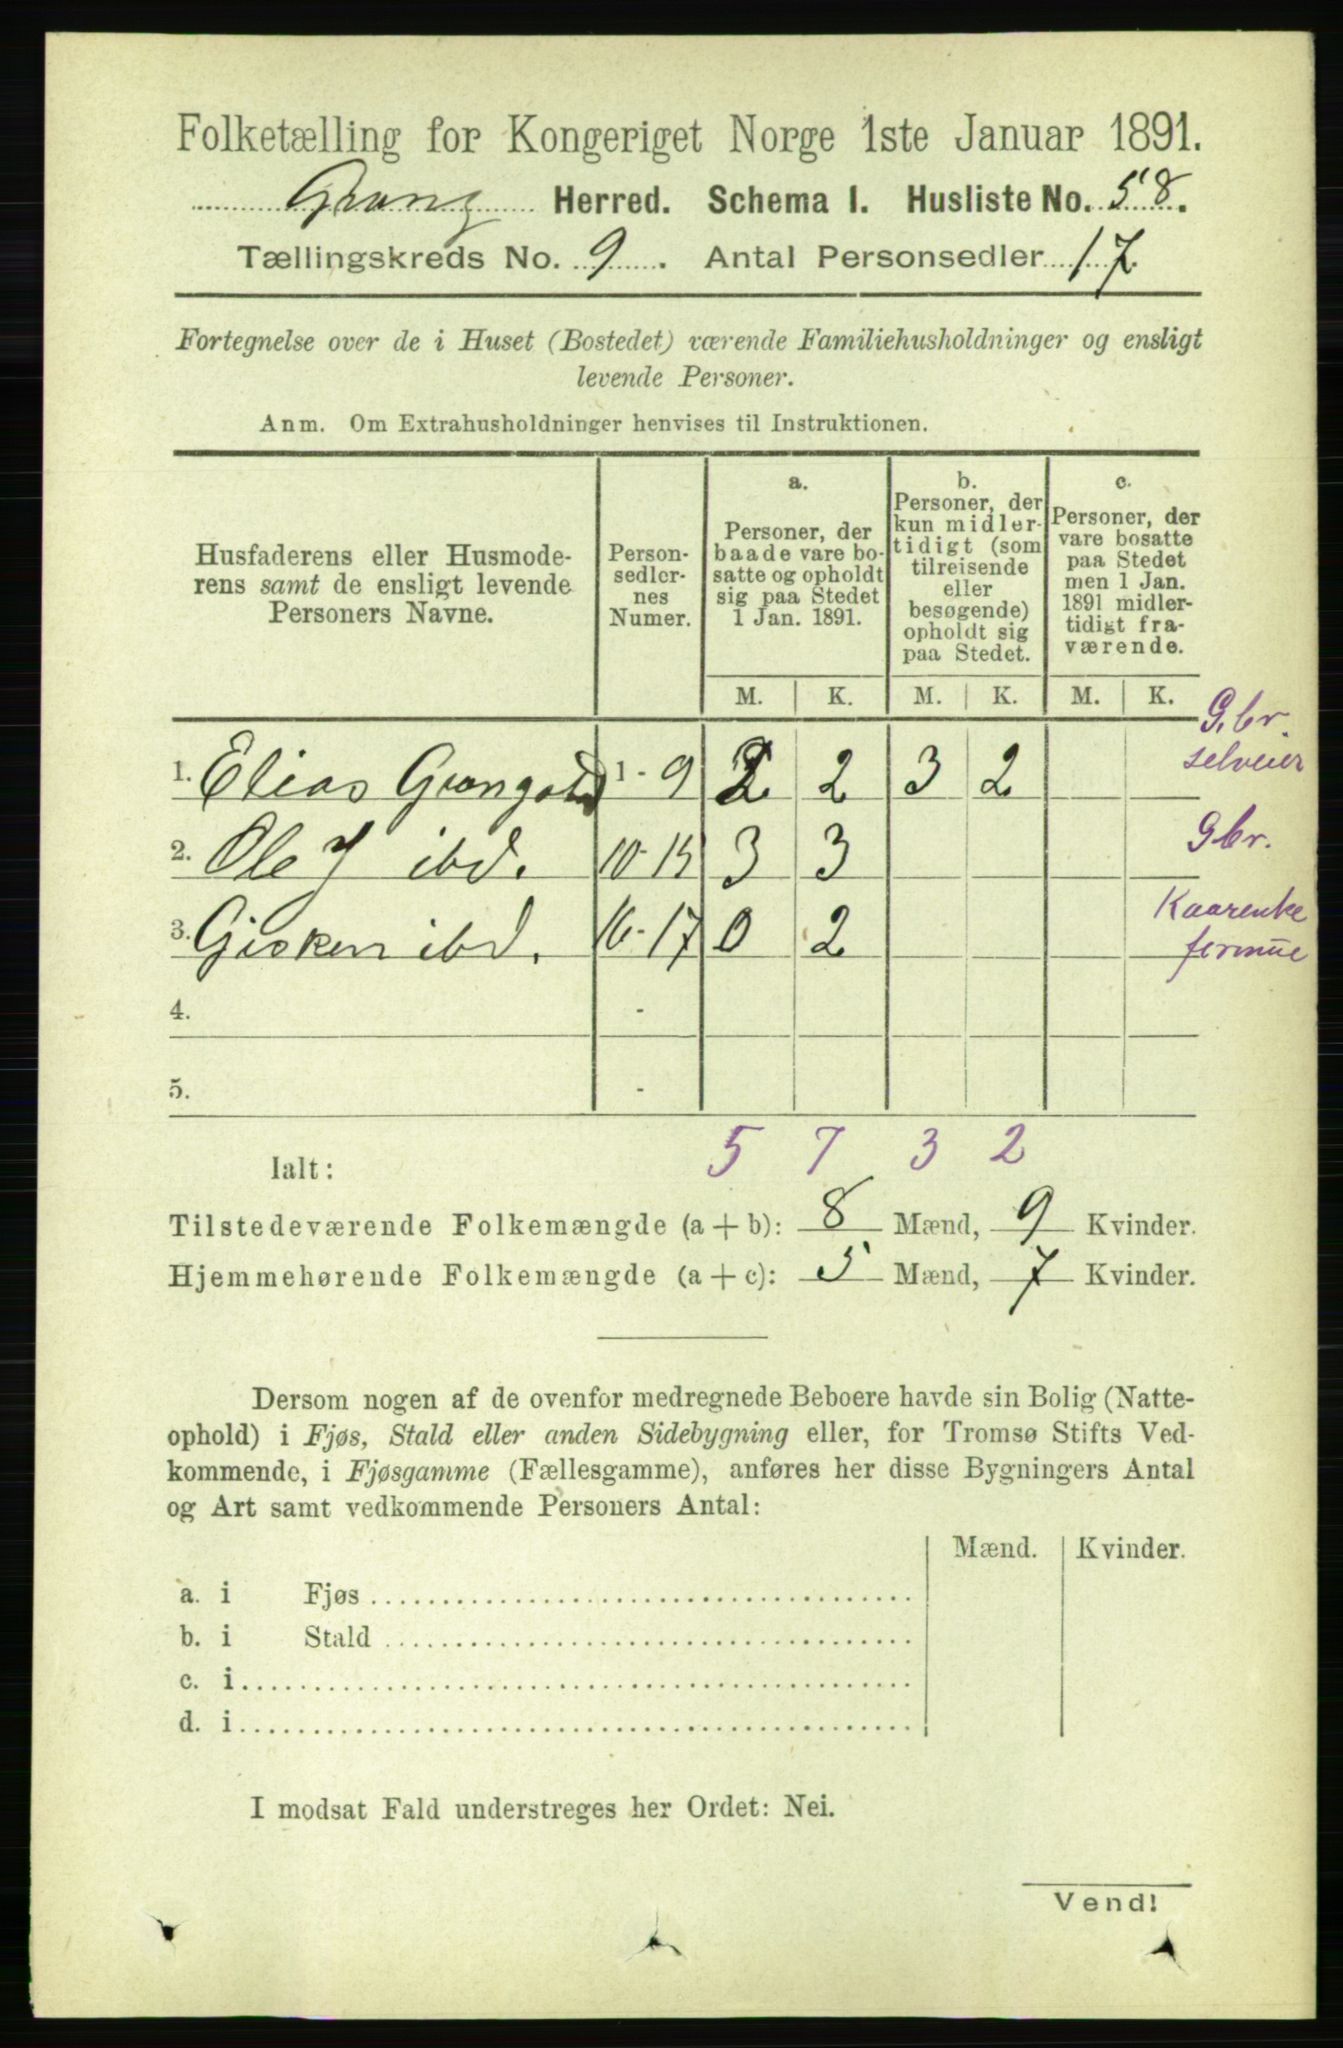 Folketælling for Kongeriget Norge 1ste Januar 1891.
Grong Herred. Schema I. Husliste No. 58.
Tællingskreds No. 9. Antal Personsedler 17
Fortegnelse over de i Huset (Bostedet) værende Familiehusholdninger og ensligt
levende Personer.
Anm. Om Extrahusholdninger henvises til Instruktionen.
Husfaderens eller Husmode-
rens samt de ensligt levende
Personers Navne.
Person-
sedler-
nes
Numer.
a.
Personer, der
baade vare bo-
satte og opholdt
sig paa Stedet
1 Jan. 1891.
b.
Personer, der
kun midler-
tidigt (som
tilreisende
eller
besøgende)
opholdt sig
paa Stedet.
c.
Personer, der
vare bosatte
paa Stedet
men 1 Jan.
1891 midler-
tidigt fra-
værende.
M. K. M. K. M. K.
1. Elias 1 - 9 2 2 3 2 G.br. selveier
2. Ole J ibd. 10 - 15 3 3 Gbr.
3. Gisken ibd. 16 - 17 0 2
4. -
5. -
Ialt: 5 7 3 2
Tilstedeværende Folkemængde (a + b): 8 Mænd, 9 Kvinder.
Hjemmehørende Folkemængde (a + c): 5 Mænd, 7 Kvinder.
Dersom nogen af de ovenfor medregnede Beboere havde sin Bolig (Natte-
ophold) i Fjøs, Stald eller anden Sidebygning eller, for Tromsø Stifts Ved-
kommende, i Fjøsgamme (Fællesgamme), anføres her disse Bygningers Antal
og Art samt vedkommende Personers Antal:
Mænd. Kvinder.
a. i Fjøs
b. i Stald
c. i
d. i
I modsat Fald understreges her Ordet: Nei.
Vend!